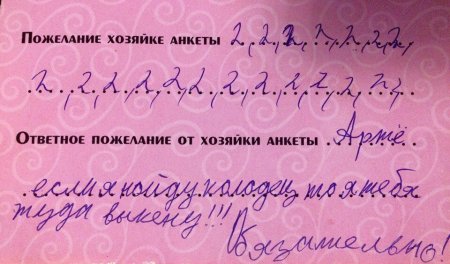 ПОЖЕЛАНИЕ ХОЗЯЙКЕ АНКЕТЫ 2, 2, 2, 2, 2, 2, 2,
2, 2, 2, 2, 2, 2, 2, 2, 2, 2, 2, 2,
ОТВЕТНОЕ ПОЖЕЛАНИЕ ОТ ХОЗЯЙКИ АНКЕТЫ Артё
если я нойду колодец то я тебя
туда выкену!!!
Обязательно!